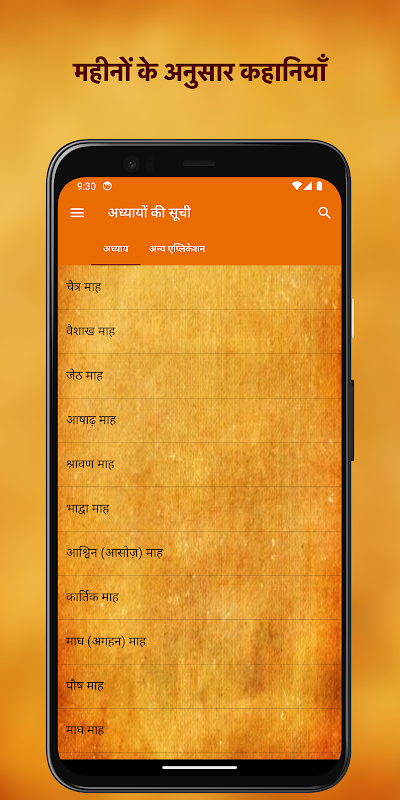 महीनों के अनुसार कहानियाँ
9:30
अध्यायों की सूची
अध्याय अन्य एप्लिकेशन
चैत्र माह
वैशाख माह
जेठ माह
आषाढ़ माह
श्रावण माह
भाद्वा माह
आश्चिन (आसोज़) माह
कार्तिक माह
माघ (अगहन) माह
पौष माह
माघ माह